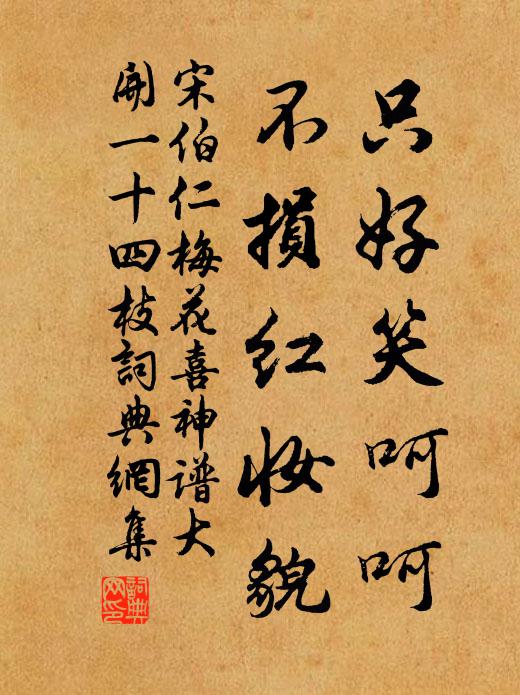 只好笑呵呵
不損红妆貌
宋伯仁梅花喜神谱大
開一十四枝詞典網集
詞典网印